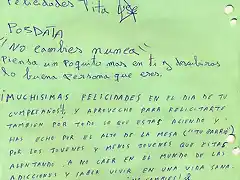 Felicidades Tita
POSDATA
"No cambies nunca"
Piensa un poquito mas en ti y descubriras
lo buena persona que eres.
¡MUCHISIMAS FELICIDADES EN EL DIA DE TU
CUMPLEAÑOS! Y APROVECHO PARA FELICITARTE
TAMBIEN POR TODO LO QUE ESTAS ACIENDO Y
HAS ECHO POR EL ALTO DE LA MESA ("TU BARRIO")
POR LOS JOVENES Y MENOS JOVENES QUE ESTAS
ALENTANDO A NO CAER EN EL MUNDO DE LAS
ADICCIONES Y SABER VIVIR EN UNA VIDA SANA